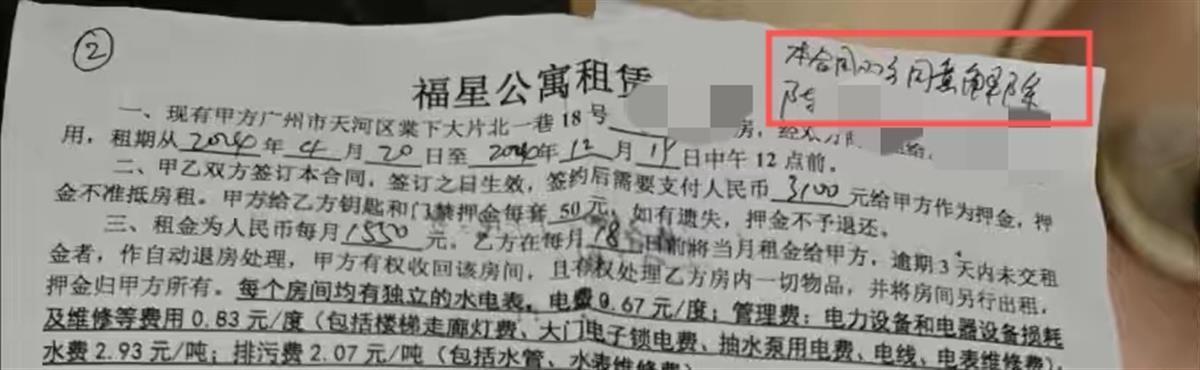 ②
本合同双方同意解除
福星公寓租赁
一、现有甲方广州市天河区棠下大片北一巷18号
房,经双方
用,租期从2024年4月20日至2024年12月19日中午12点前。
二、甲乙双方签订本合同,签订之日生效,签约后需要支付人民币3100元给甲方作为押金,押
金不准抵房租。甲方给乙方钥匙和门禁押金每套50元,如有遗失,押金不予退还。
三、租金为人民币每月1550元。乙方在每月18日前将当月租金给甲方,逾期3天内未交租
金者,作自动退房处理,甲方有权收回该房间,且有权处理乙方房内一切物品,并将房间另行出租,
押金归甲方所有。每个房间均有独立的水电表。电费0.67元/度;管理费:电力设备和电器设备损耗
及维修等费用0.83元/度(包括楼梯走廊灯费、大门电子锁电费、抽水泵用电费、电线、电表维修费)
水费2.93元/吨;排污费2.07元/吨(包括水管、水表维修费)